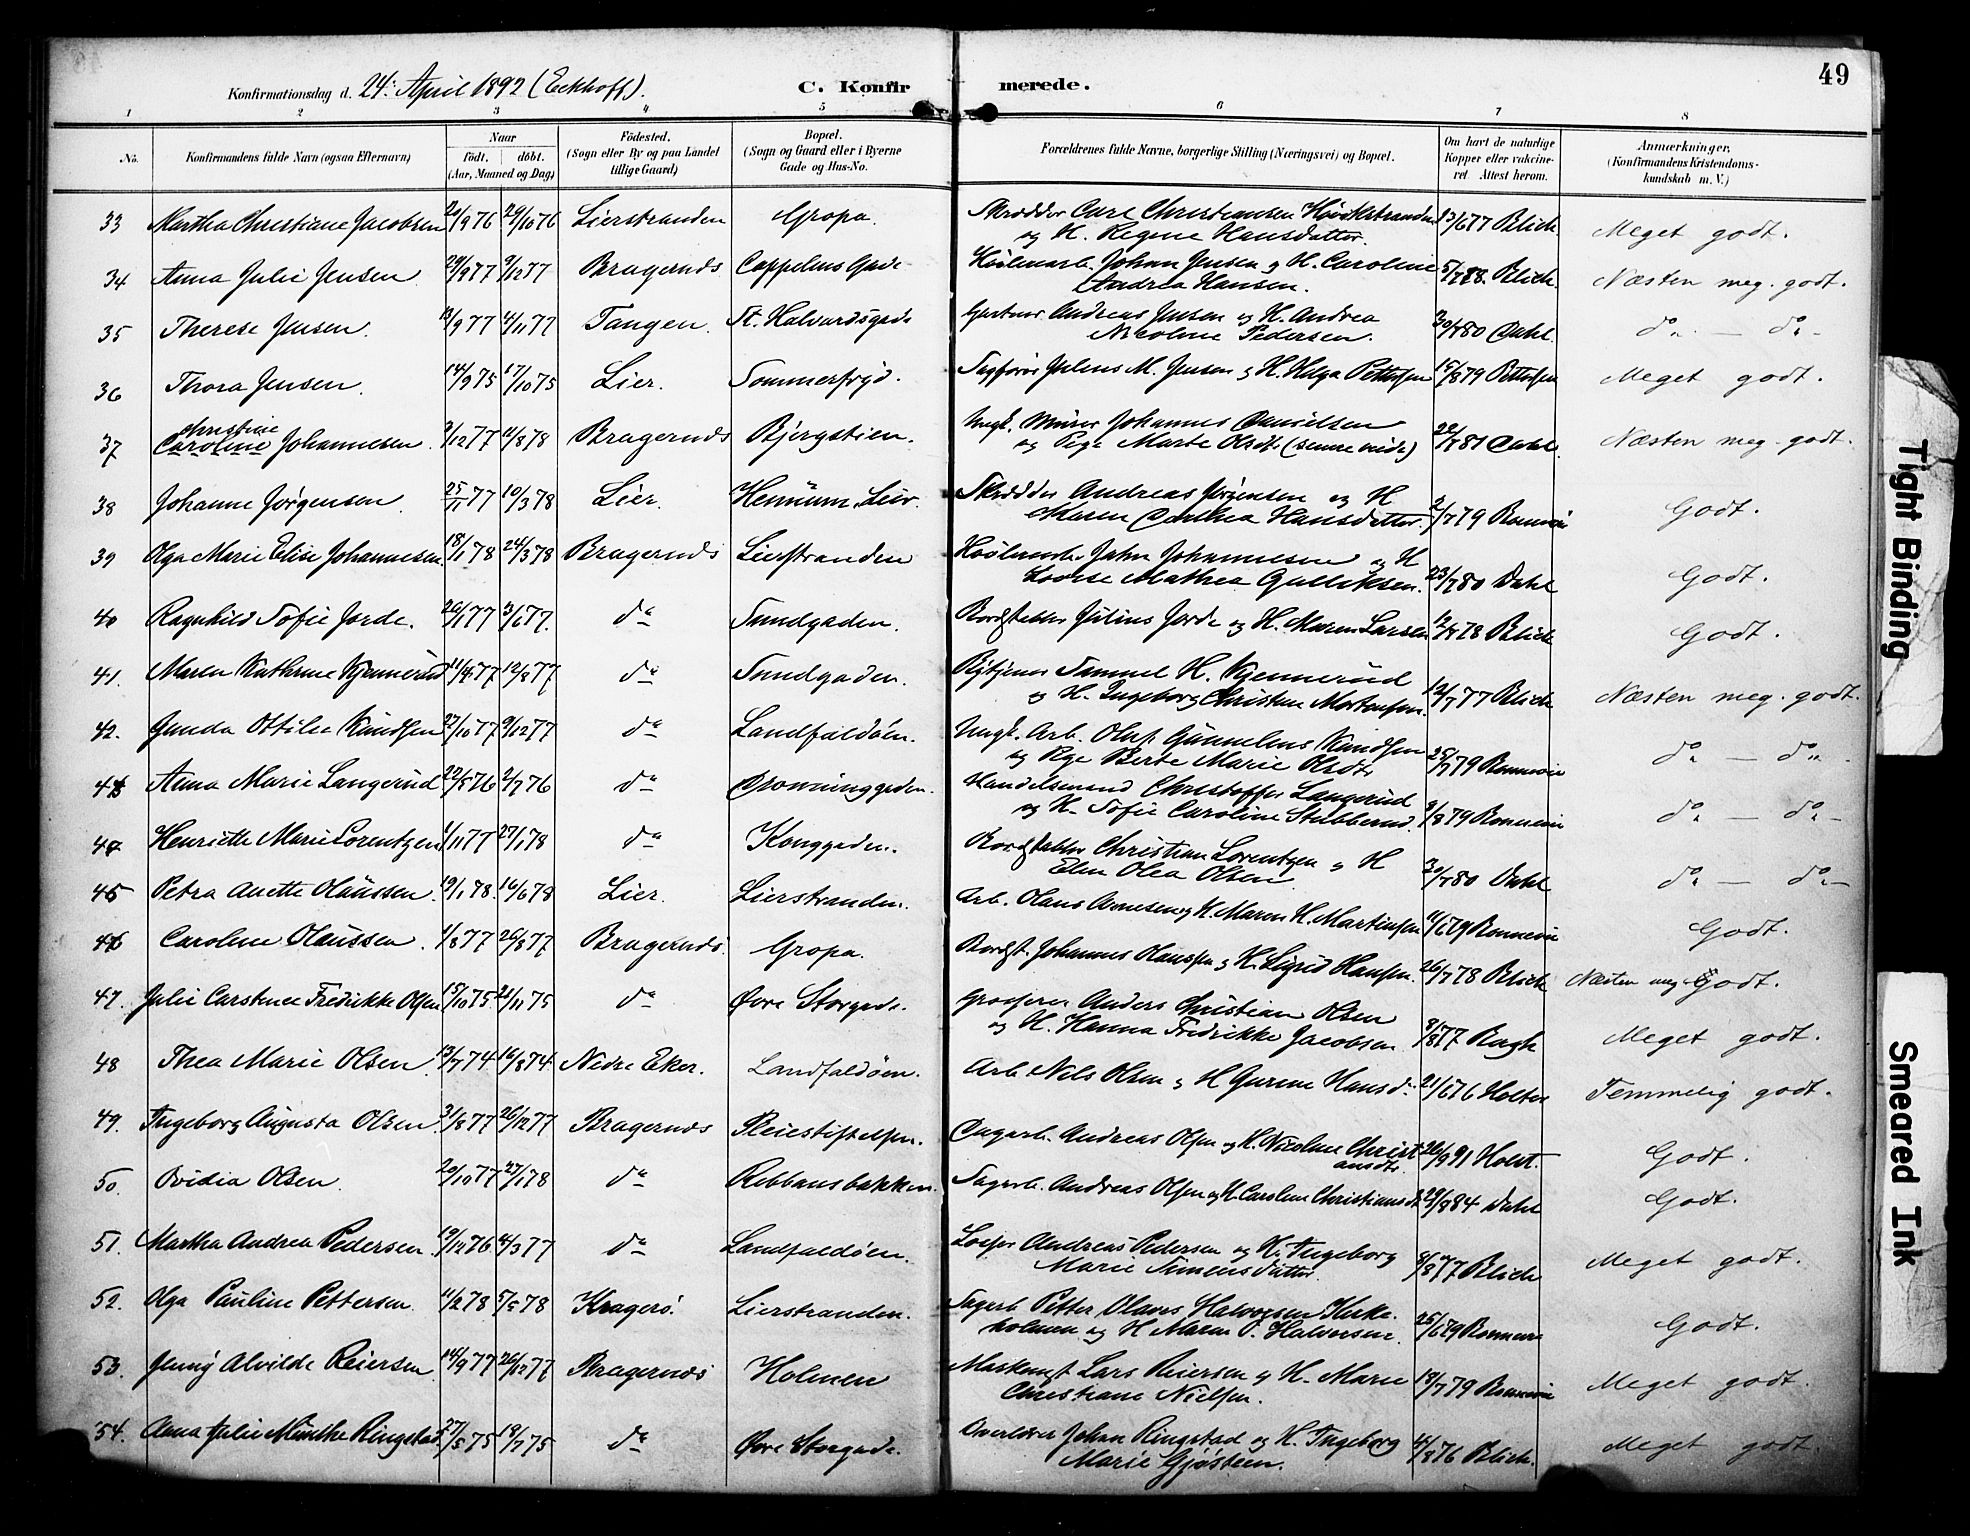 49
Konfirmationsdag d. 24. April 1892 (Eckhoff). C. Konfir merede.
1 2 3 4 5 6 7 8
No. Konfirmandens fulde Navn (ogsaa Efternavn) Naar födt. döbt. (Aar, Maaned og Dag) Födested. (Sogn eller By og paa Landet tillige Gaard) Bopæl. (Sogn og Gaard eller i Byerne Gade og Hus-No. Forældrenes fulde Navne, borgerlige Stilling (Næringsvei) og Bopæl. Om havt de naturlige Kopper eller vakcineret. Attest herom. Anmærkninger. (Konfirmandens Kristendomskundskab m. V.)
33 Martha Christiane Jacobsen 20/9 76 29/10 76 Lierstranden Gropa. Skrædder Carl Christiansen 13/6 77 Blich. Meget godt.
og H. Regine Hansdatter.
34 Anna Julie Jensen 29/9 77 9/12 77 Bragernæs Cappelens Gade Johan Jensen og H. Caroline Blich. Næsten meg. godt.
Andrea Hansen.
35 Therese Jensen. 13/9 77 4/11 77 Tangen. St. Halvardsgade Andreas Jensen og H. Andrea 30/7 80 Dahl. do — do
Nicoline Pedersen.
36 Thora Jensen 14/9 75 17/10 75 Lier. Sommerfryd. Julius M. Jensen og H. Helga Pettersen 15/8 79 Pettersen Meget godt.
37 Christine Caroline Johannesen 9/12 77 11/8 78 Bragernæs Bjergstien. Ungk. Murer Johannes Danielsen 22/7 81 Dahl. Næsten meg. godt.
og Pige Marte Olsdt. (senere viede)
38 Johanne Jørgensen 25/11 77 10/3 78 Lier. Hennum, Lier. Skrædder Andreas Jørgensen og H 2/7 79 Godt.
Maren Hansdatter.
39 Olga Marie Elise Johannesen 18/1 78 24/3 78 Bragernæs Lierstranden John Johannesen og H 23/7 80 Dahl Godt.
Lovise Mathea Gulliksen.
40 Ragnhild Sofie Jorde. 20/1 77 3/6 77. do Sundgaden. Bordstabler Julius Jorde og H. Maren Larsen 12/7 78 Blich Godt.
41. Maren Kathrine Kjennerud 11/4 77 12/8 77 do Sundgaden. Samuel H. Kjennerud 12/7 77 Blich Næsten meg. godt.
og H. Ingeborg Christine Mortensen.
42. Gunda Ottilie Knudsen 27/10 77 9/12 77 do Landfaldøen. Ungk. Arb. Olaf Knudsen 25/7 79 do — do
og Pige Berte Marie Olsdt.
43 Anna Marie Langerud 22/5 76 2/7 76 do Dronninggaden. Handelsmand Christoffer Langerud 8/8 79 do — do
og H. Sofie Caroline Stubberud.
44 Henriette Marie Lorentzen 1/11 77 27/1 78 do Konggaden. Bordstabler Christian Lorentzen og H 30/7 80 Dahl do — do
Elen Olea Olsen
45 Petra Anette Olaussen. 19/1 78 16/6 78 Lier. Lierstranden. Arb. Olaus og H. Maren H. Martinsen 11/6 79 Godt.
46 Caroline Olaussen 1/8 77 26/8 77 Bragernæs. Gropa. Bordst. Johannes og H. Sigrid Hansen. 26/7 78 Blich Næsten meg Godt.
47. Julie Carstence Fredrikke Olsen 15/10 75 21/11 75 do Øvre Storgade. Grosserer Anders Christian Olsen 8/8 77 Meget godt.
og H. Hanna Fredrikke Jacobsen
48 Thea Marie Olsen 13/7 74 16/8 74 Nedre Eker. Landfaldøen. Arb. Nels Olsen og H Hansd. 21/6 76 Holter Temmelig godt.
49. Ingeborg Augusta Olsen 31/8 77 26/12 77 Bragernæs Pleiestiftelsen. Andreas Olsen og H. Nicoline Christiansdt. 26/9 91 Holst. Godt.
50. Ovidia Olsen 20/10 77 27/1 78 do Ribbansbakken. Sagarb. Andreas Olsen og H. Caroline Christiansdt. 29/8 84 Dahl Godt.
51. Martha Andrea Pedersen 19/12 76 4/3 77 do Landfaldøen. Andreas Pedersen og H. Ingeborg 8/8 77 Blich Meget godt.
Marie Simensdatter.
52. Olga Pauline Pettersen 11/2 78 5/5 78 Kragerö. Lierstranden. Sagarb Petter Olaves Halvorsen Kirkeholmen 25/6 79 Godt.
og H Maren P. Halvorsen.
53. Jenny Alvilde Reiersen 14/9 77 26/12 77 Bragernæs Holmen Lars Reiersen og H. Marie 18/7 79 Meget godt.
Christiane Nielsen.
54. Anna Julie Munthe Ringstad 27/5 75 18/7 75 do Øvre Storgade. Overlærer Johan Ringstad og H. Ingeborg 4/8 76 Blich. Meget godt.
Marie Gjøsteen.
Tight Binding
Smeared Ink